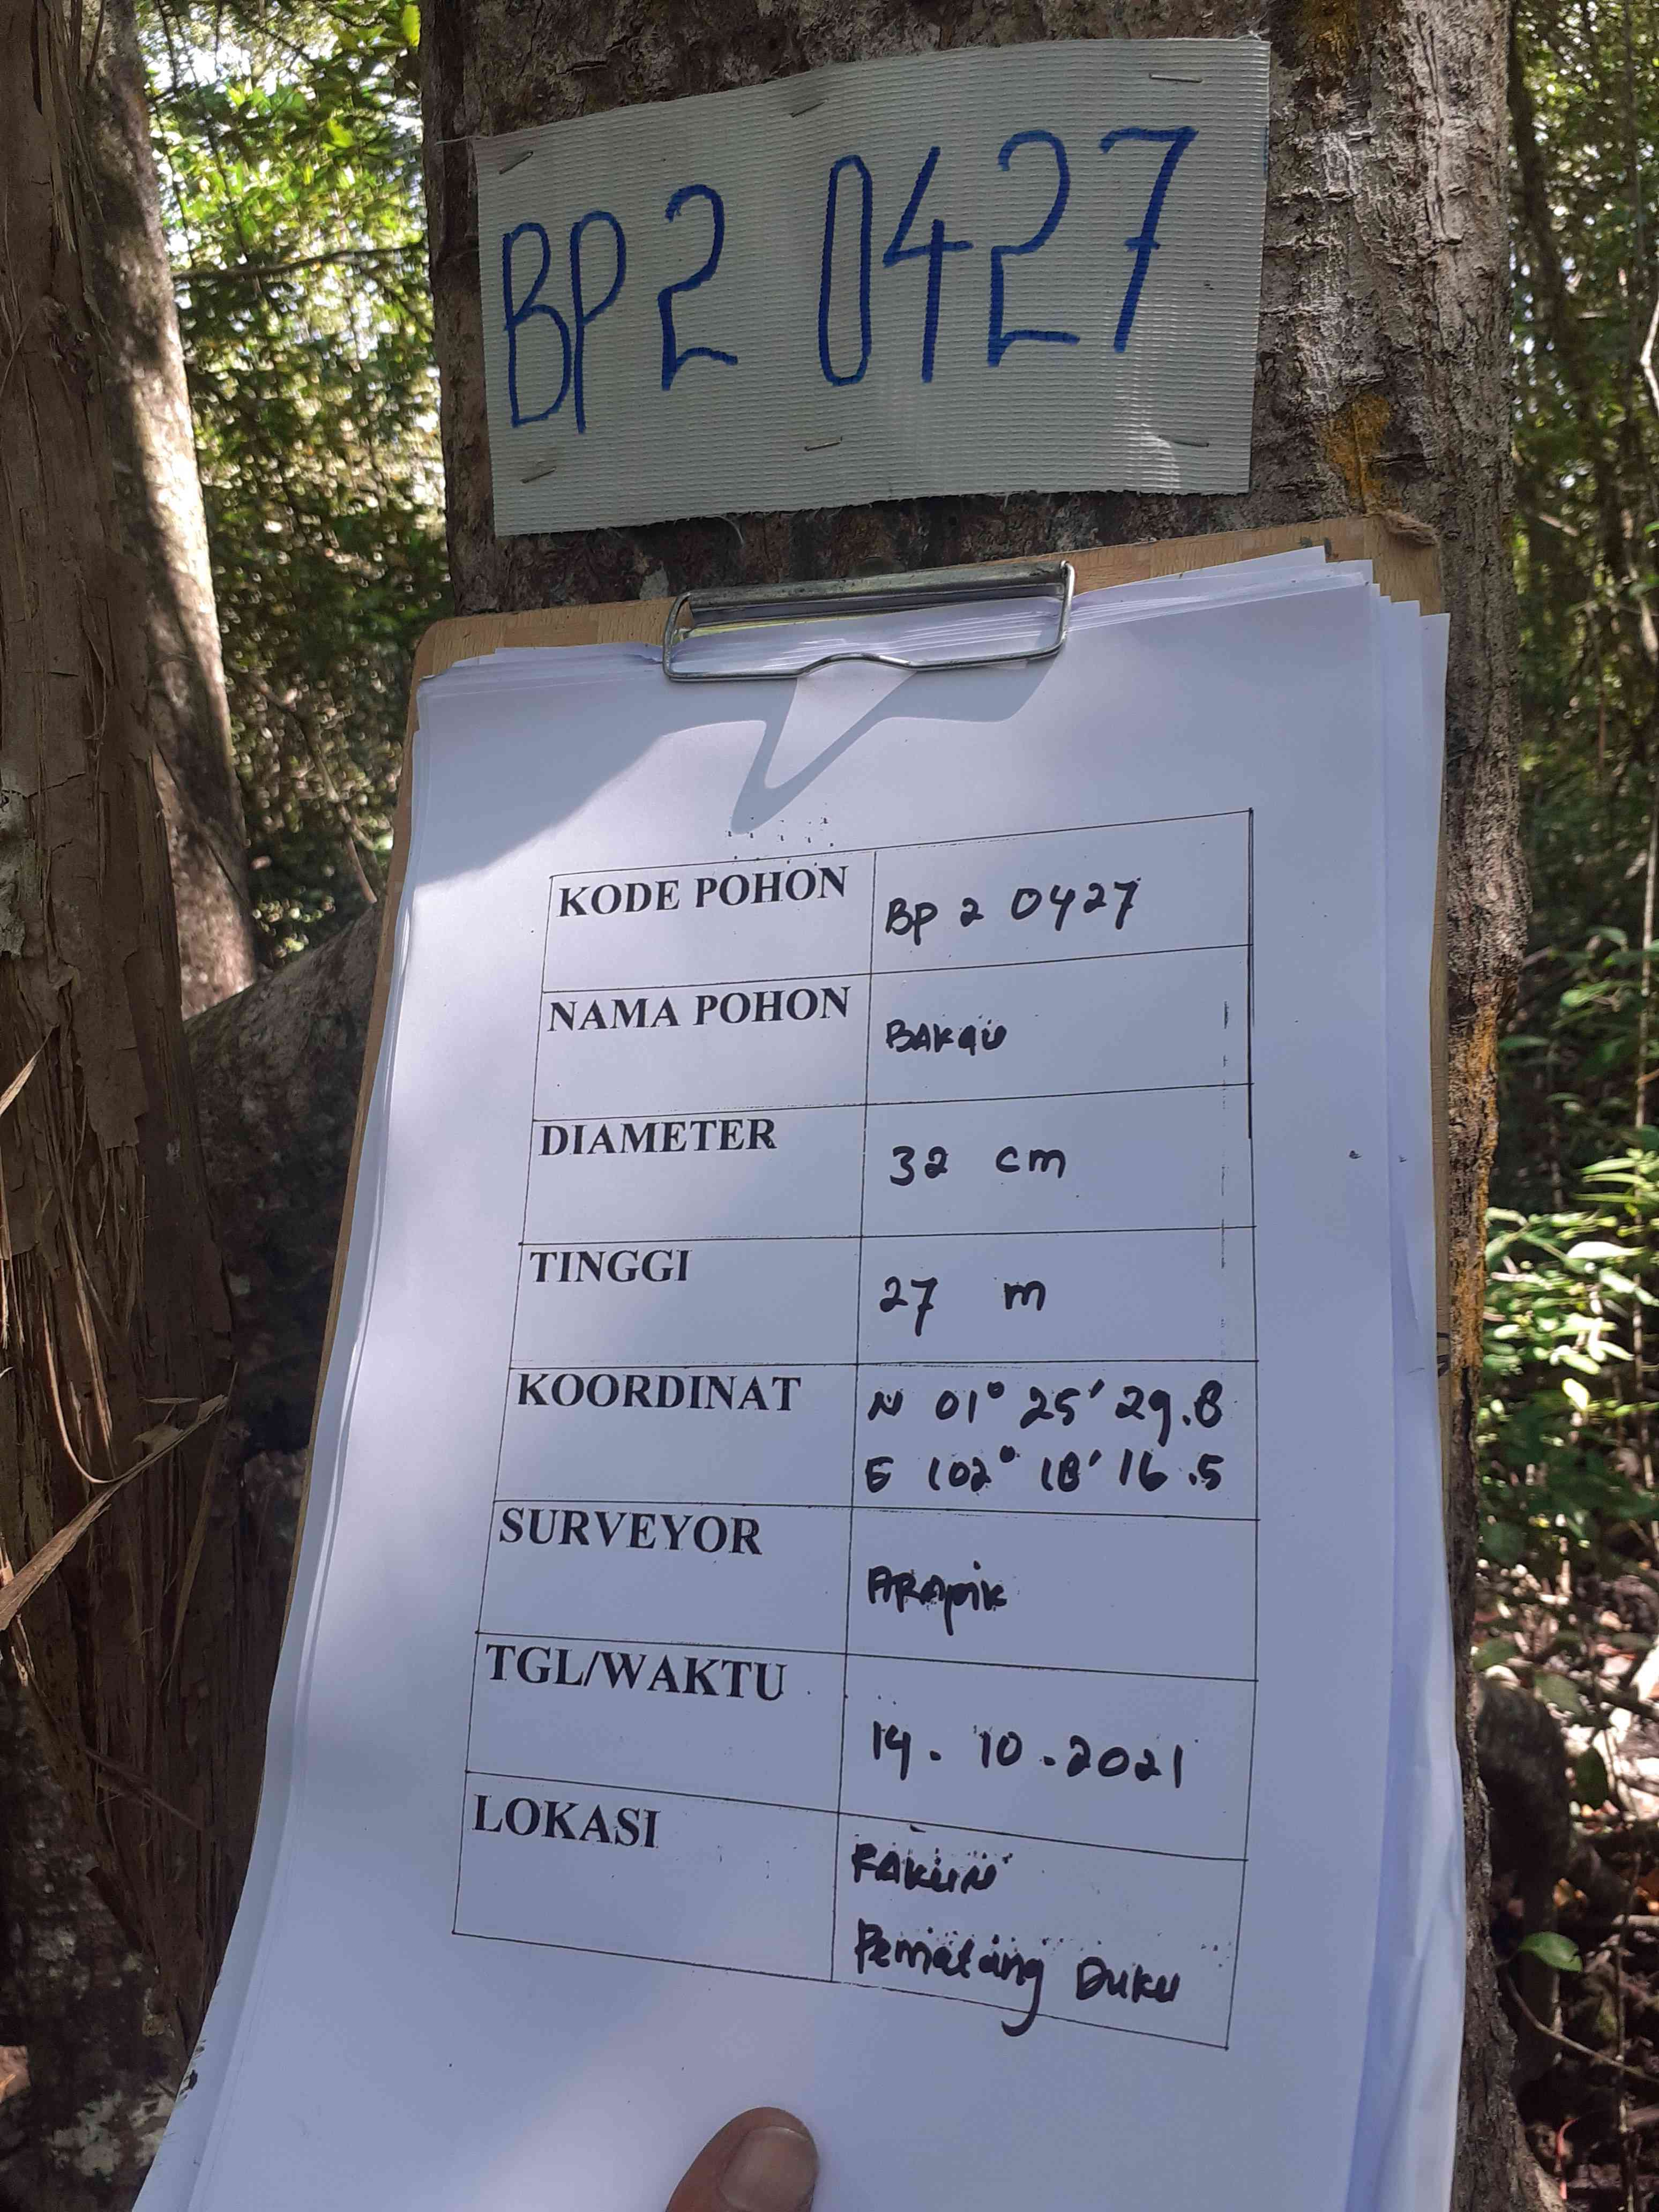 BP2 0427
KODE POHON BP 2 0427
NAMA POHON BAKAU
DIAMETER 32 cm
TINGGI 27 m
KOORDINAT N 01° 25' 29.8
E 102° 18' 16.5
SURVEYOR ARAPIK
TGL/WAKTU 14. 10 .2021
LOKASI
Pematang Duku